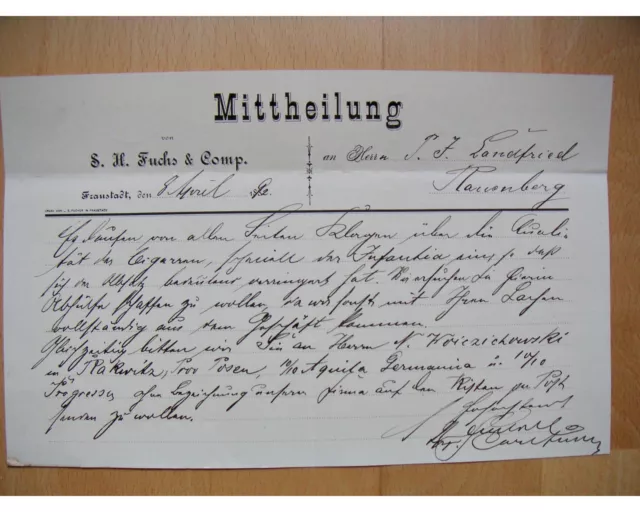 Mittheilung
von
S. H. Fuchs & Comp.
an Herrn P. J. Landfried
Fraustadt, den 8 April
Rauenberg
Es laufen von allen Seiten Klagen über die Quali-
tät der Cigarren, speciell der Infantia ein, so daß
sich der Absatz bedeutend verringert hat. Wir ersuchen Sie hierin
Abhülfe schaffen zu wollen, da wir sonst mit Ihren Sachen
vollständig aus dem Geschäft kommen.
Gleichzeitig bitten wir Sie an Herrn N. Woiczichowski
in Rakwitz, Prov Posen, 10/10 Aquila Germania u. 10/10
Progresso ohne Bezeichnung unserer Firma auf den Kisten per Post
senden zu wollen.
Hochachtend